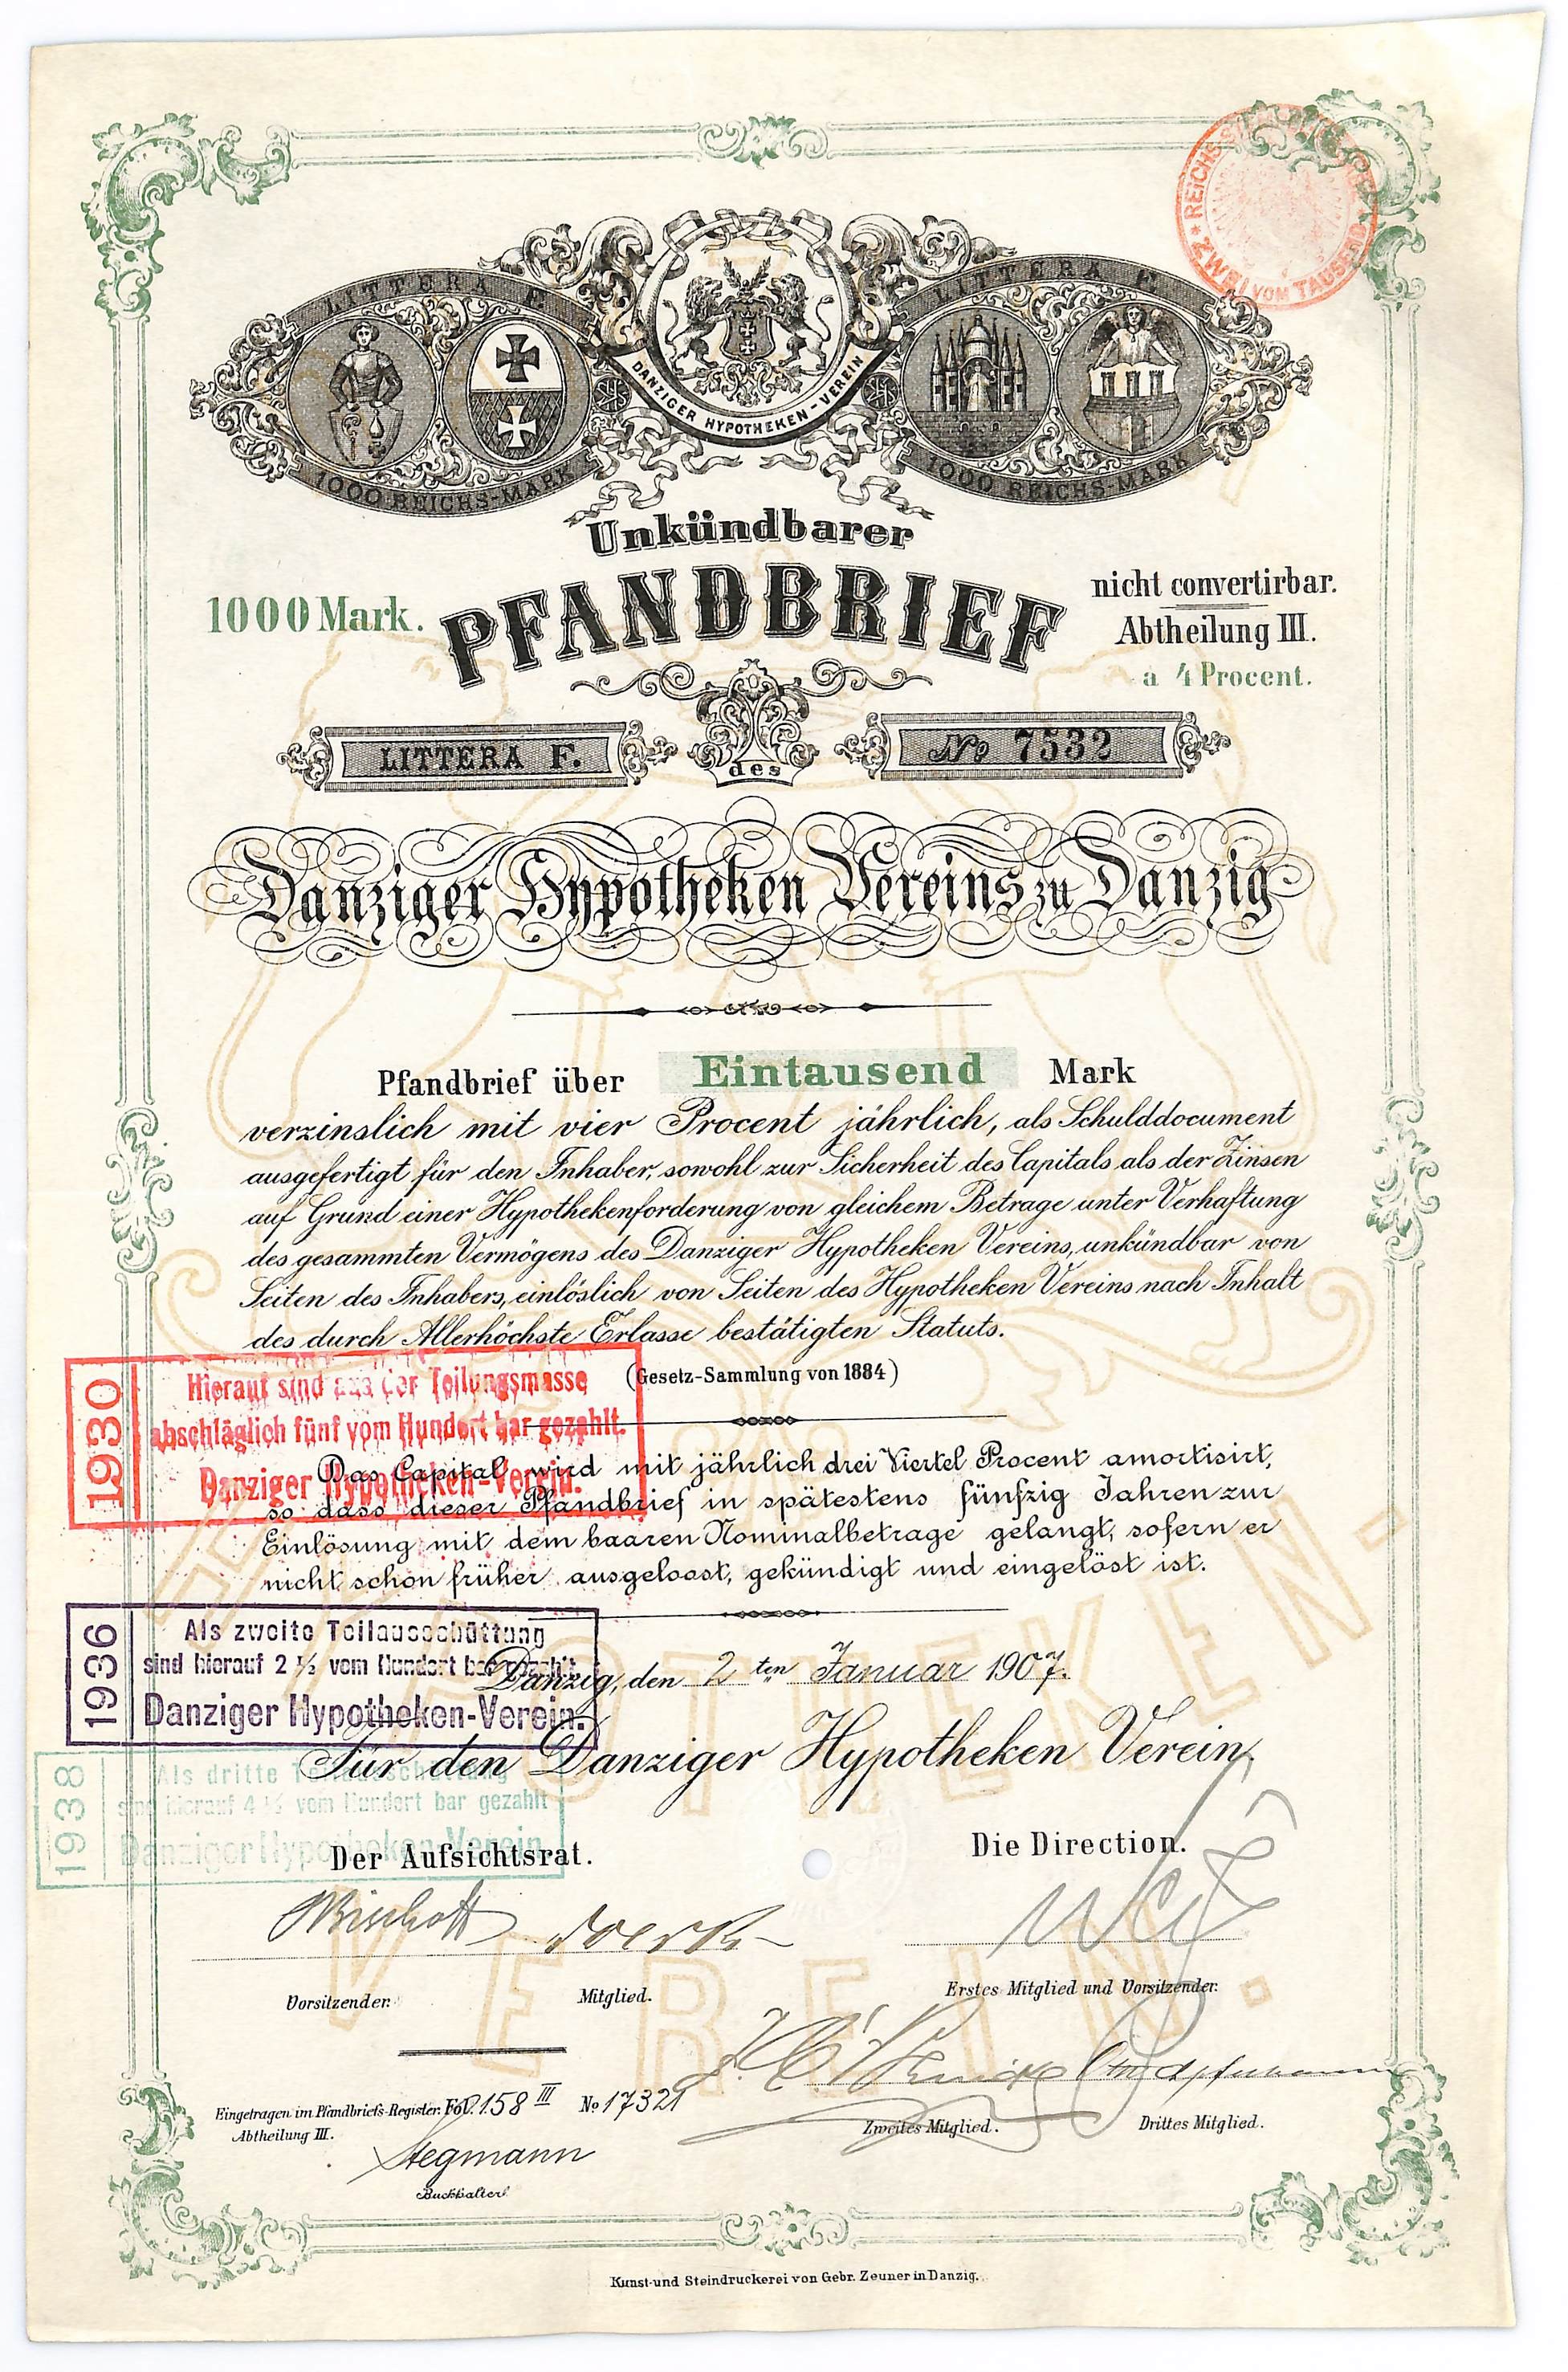 REICHSS
ZWEI VOM TAUSEND
LITTERA F.
LITTERA F.
DANZIGER HYPOTHEKEN-VEREIN
1000 REICHS-MARK
1000 REICHS-MARK
Unkündbarer
PFANDBRIEF
1000 Mark.
nicht convertirbar.
Abtheilung III.
a 4 Procent.
LITTERA F.
des
No 7532
Danziger Hypotheken Vereins zu Danzig
Pfandbrief über Eintausend Mark
verzinslich mit vier Procent jährlich, als Schulddocument
ausgefertigt für den Inhaber, sowohl zur Sicherheit des Capitals als der Zinsen
auf Grund einer Hypothekenforderung von gleichem Betrage unter Verhaftung
des gesammten Vermögens des Danziger Hypotheken Vereins, unkündbar von
Seiten des Inhabers, einlöslich von Seiten des Hypotheken Vereins nach Inhalt
des durch Allerhöchste Erlasse bestätigten Statuts.
(Gesetz-Sammlung von 1884)
1930
Hierauf sind aus der Teilungsmasse
abschläglich fünf vom Hundert bar gezahlt.
Danziger Hypotheken-Verein.
Das Capital wird mit jährlich drei Viertel Procent amortisirt,
so dass dieser Pfandbrief in spätestens fünfzig Jahren zur
Einlösung mit dem baaren Nominalbetrage gelangt, sofern er
nicht schon früher ausgeloost, gekündigt und eingelöst ist.
1936
Als zweite Teilausschüttung
sind hierauf 2 ½ vom Hundert bar gezahlt
Danziger Hypotheken-Verein.
Danzig, den 2ten Januar 1907.
Für den Danziger Hypotheken Verein,
1938
Als dritte Teilausschüttung
sind hierauf 4 ½ vom Hundert bar gezahlt
Danziger Hypotheken-Verein
Der Aufsichtsrat.
Die Direction.
Vorsitzender.
Mitglied.
Erstes Mitglied und Vorsitzender.
Eingetragen im Pfandbriefs-Register Fol. 158 III No 17321
Abtheilung III.
Zweites Mitglied.
Drittes Mitglied.
Stegmann
Buchhalter
HYPOTHEKEN-
VEREIN.
Kunst-und Steindruckerei von Gebr. Zeuner in Danzig.